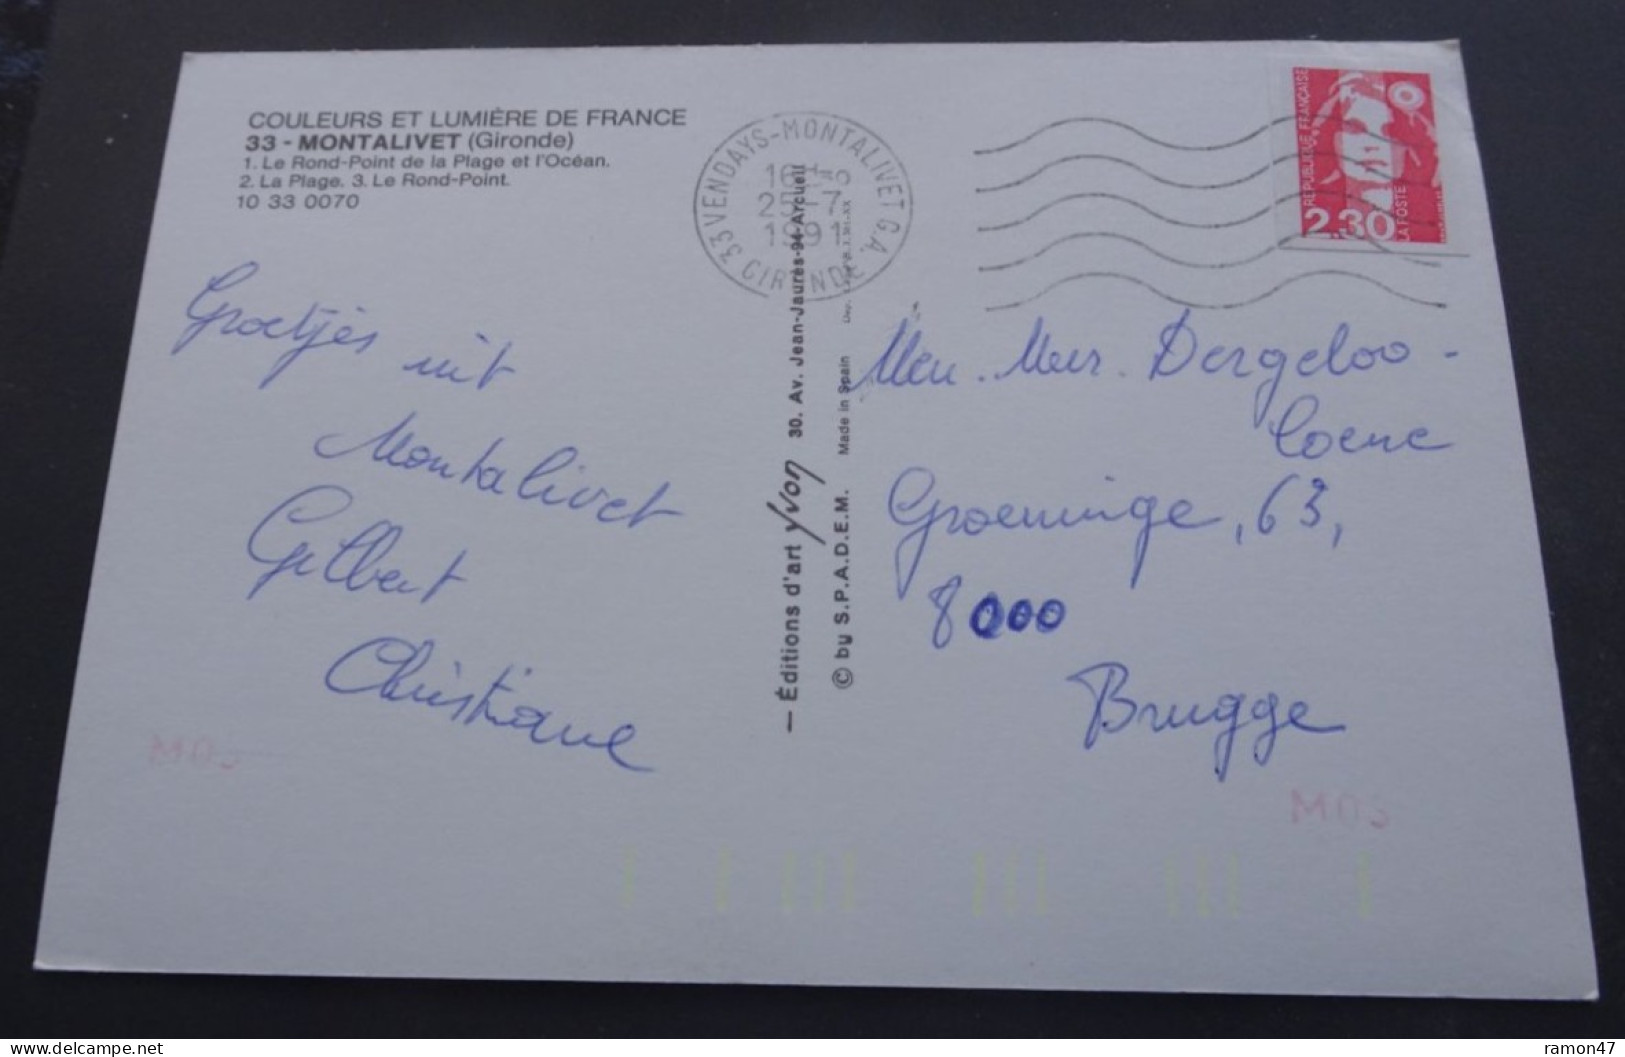 COULEURS ET LUMIÈRE DE FRANCE
33 - MONTALIVET (Gironde)
1. Le Rond-Point de la Plage et l'Océan.
2. La Plage. 3. Le Rond-Point.
10 33 0070
33 VENDAYS-MONTALIVET G.A.
1991
GIRONDE
RÉPUBLIQUE FRANÇAISE
2.30
LA POSTE
Groetjes uit
Montalivet
Gilbert
Christiane
— Éditions d'art Yvon 30. Av. Jean-Jaurès-94-Arcueil
© by S.P.A.D.E.M. Made in Spain
Dergeloo -
Coene
Groeninge, 63,
8000
Brugge
M03
M03
ramon47